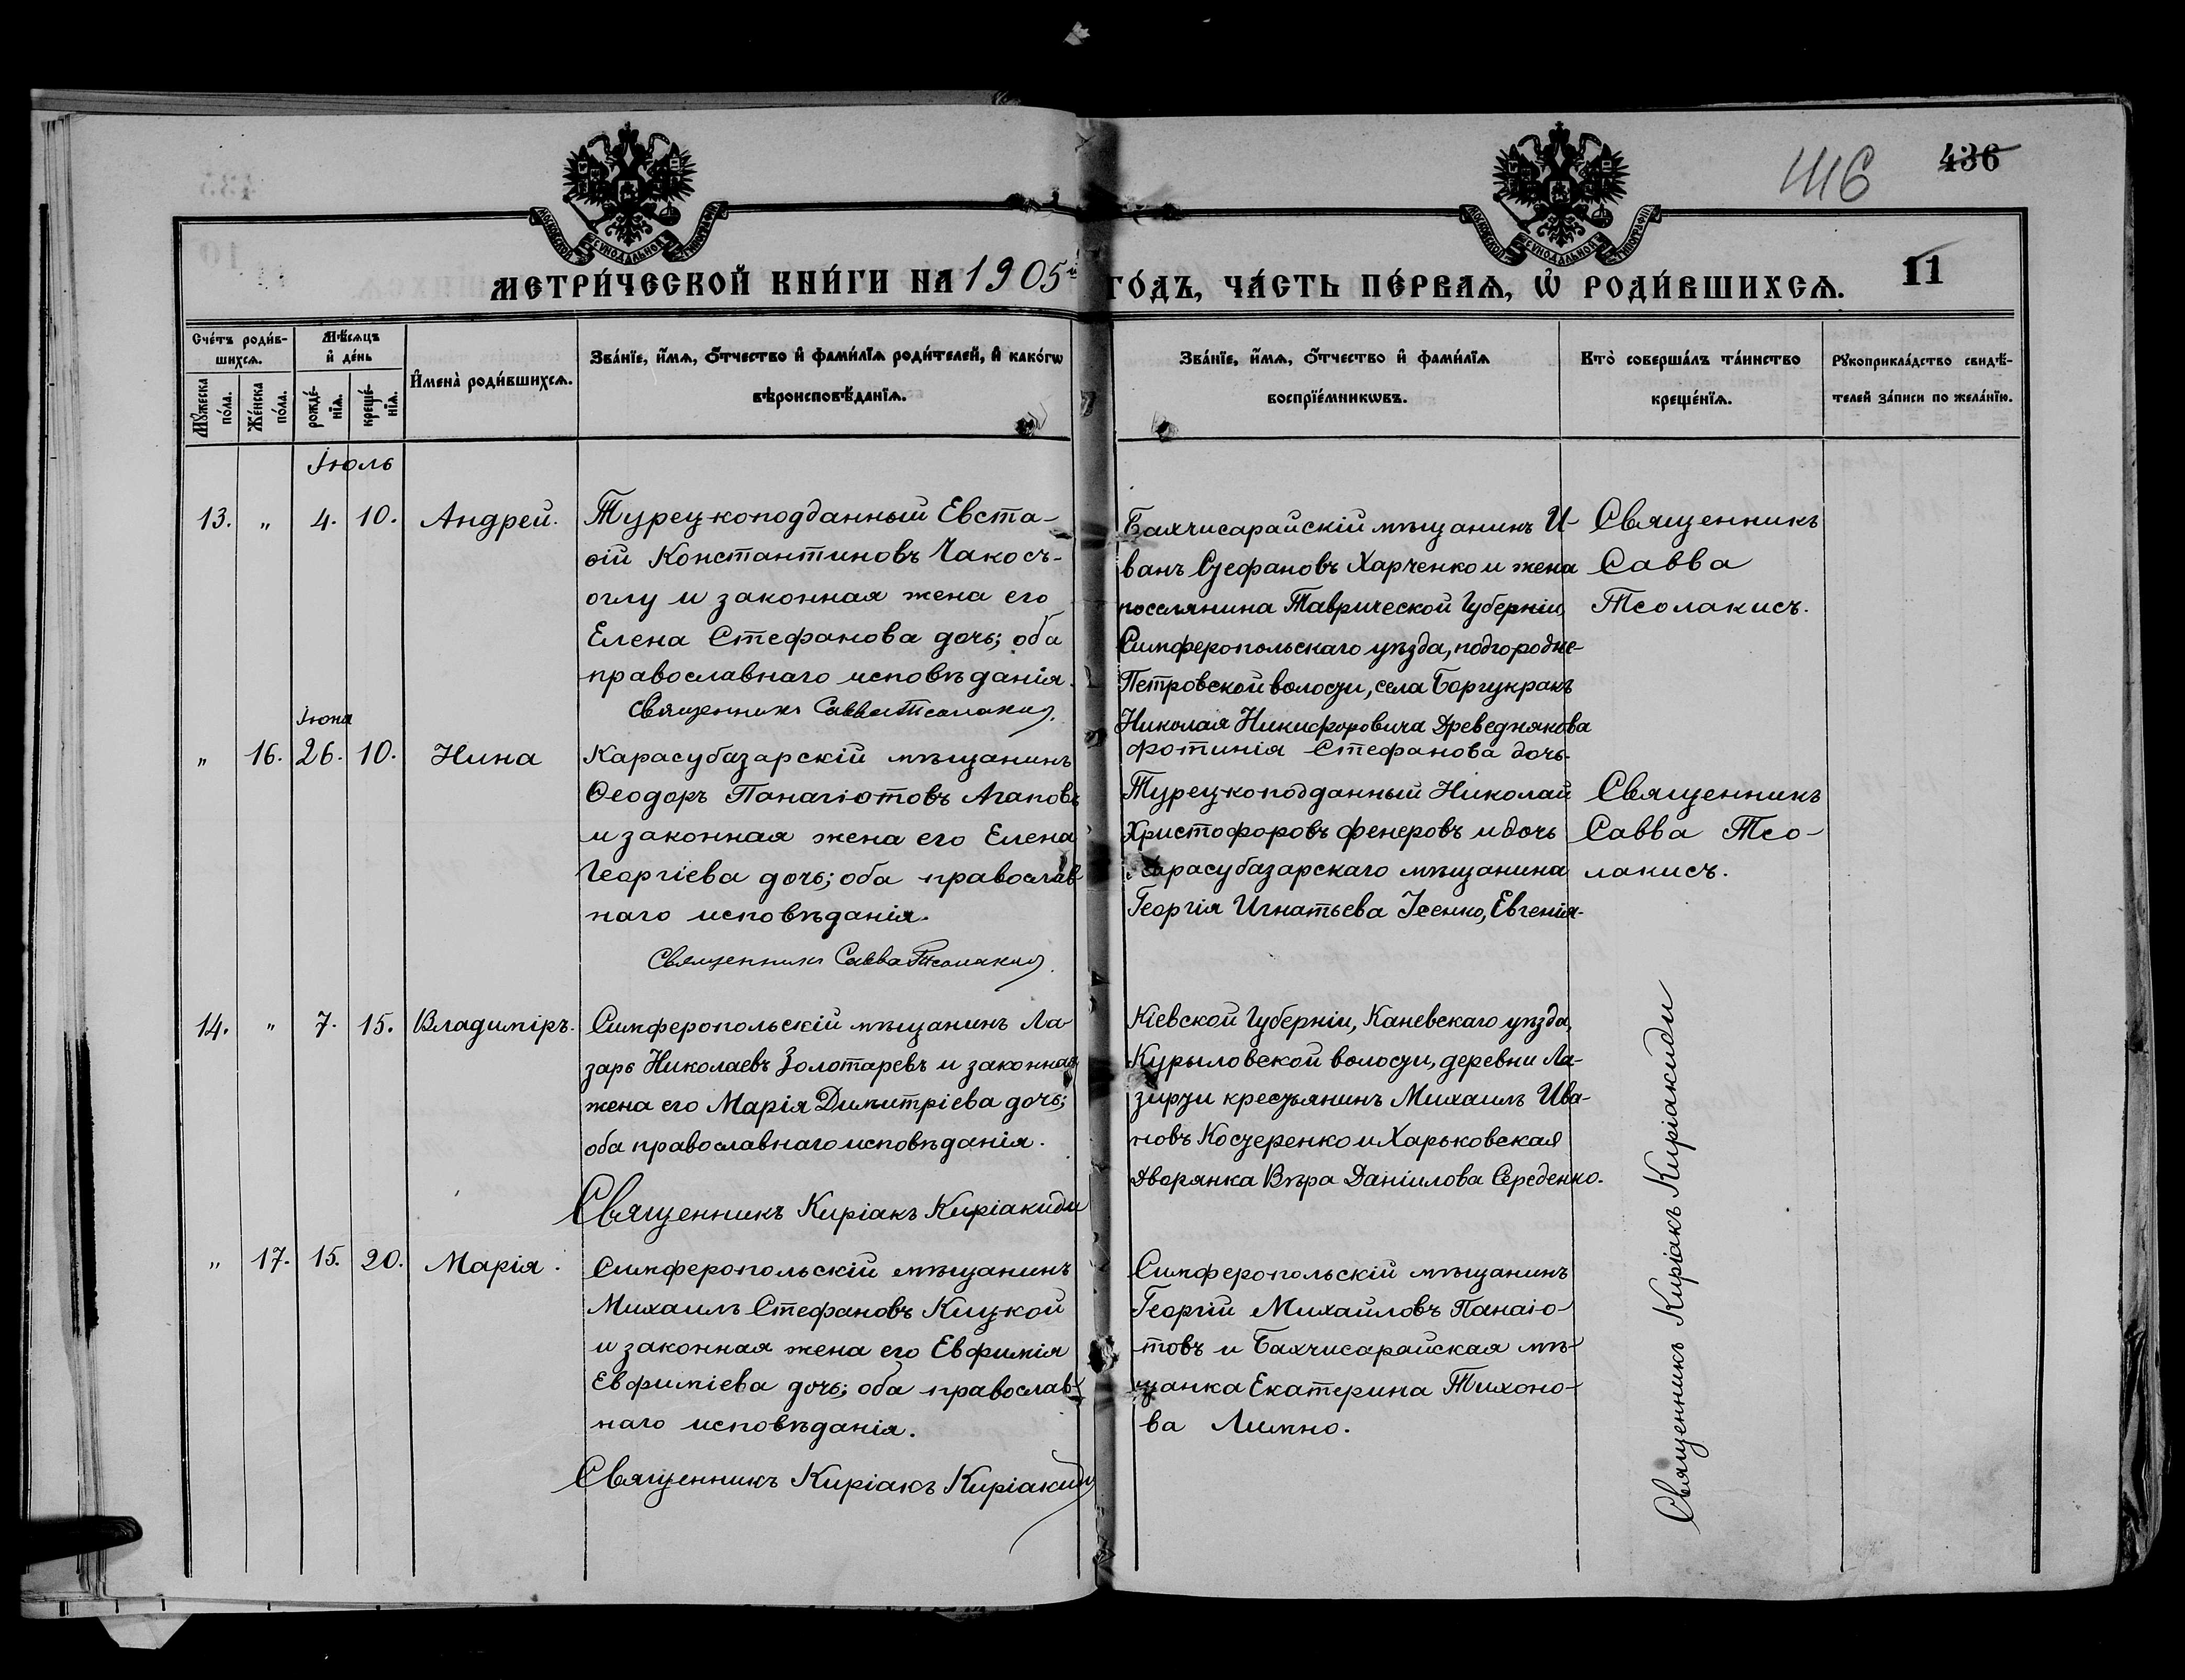 416
436
МОСКОВСКОЙ СѴНОДАЛЬНОЙ ТИПОГРАФІИ
МОСКОВСКОЙ СѴНОДАЛЬНОЙ ТИПОГРАФІИ
МЕТРИ́ЧЕСКОЙ КНИ́ГИ НА 1905й ГО́ДЪ, ЧА́СТЬ ПЕ́РВАѦ, Ѡ҆ РОДИ́ВШИХСѦ.
11
Сче́тъ роди́в-
шихсѧ.
Мꙋ́жеска
по́ла.
Же́нска
по́ла.
Мѣ́сѧцъ
и҆ де́нь
рожде́-
нїѧ.
креще́-
нїѧ.
И҆мена̀ роди́вшихсѧ.
Зва́нїе, и҆́мѧ, ѻ҆́тчество и҆ фами́лїѧ роди́телей, и҆ како́гѡ
вѣроисповѣ́данїѧ.
Зва́нїе, и҆́мѧ, ѻ҆́тчество и҆ фами́лїѧ
воспрїе́мникѡвъ.
Кто̀ соверша́лъ та́инство
креще́нїѧ.
Рꙋкоприкла́дство свидѣ́-
телей за́писи по жела́нїю.
Іюль
13.
„
4.
10.
Андрей.
Турецкоподданный Евста-
ѳій Константиновъ Чакосъ-
оглу и законная жена его
Елена Стефанова дочь; оба
православнаго исповѣданія.
Священникъ Савва Тсолакисъ.
Бахчисарайскій мѣщанинъ И-
ванъ Стефановъ Харченко и жена
поселянина Таврической Губерніи
Симферопольскаго уѣзда, подгородне-
Петровской волости, села
Николая Никифоровича
Фотинія Стефанова дочь.
Священникъ
Савва
Тсолакисъ.
Іюня
„
16.
26.
10.
Нина
Карасубазарскій мѣщанинъ
Ѳеодоръ Панагіотовъ Агаповъ
и законная жена его Елена
Георгіева дочь; оба православ
наго исповѣданія.
Священникъ Савва Тсолакисъ.
Турецкоподданный Николай
Христофоровъ Фенеровъ и дочь
Карасубазарскаго мѣщанина
Георгія Игнатьева Ісенко, Евгенія.
Священникъ
Савва Тсо-
лакисъ.
14.
„
7.
15.
Владиміръ.
Симферопольскій мѣщанинъ Ла-
зарь Николаевъ Золотаревъ и законная
жена его Марія Димитріева дочь;
оба православнаго исповѣданія.
Священникъ Киріакъ Киріакиди
Кіевской Губерніи, Каневскаго уѣзда,
Курыловской волости, деревни Ла-
зирци крестьянинъ Михаилъ Ива-
новъ Костеренко и Харьковская
дворянка Вѣра Даніилова Середенко.
„
17.
15.
20.
Марія.
Симферопольскій мѣщанинъ
Михаилъ Стефановъ Кицкой
и законная жена его Евфимія
Евфиміева дочь; оба православ-
наго исповѣданія.
Священникъ Киріакъ Киріакиди
Симферопольскій мѣщанинъ
Георгій Михайловъ Панаіо-
товъ и Бахчисарайская мѣ-
щанка Екатерина Тихоно-
ва Лимно.
Священникъ Киріакъ Киріакиди